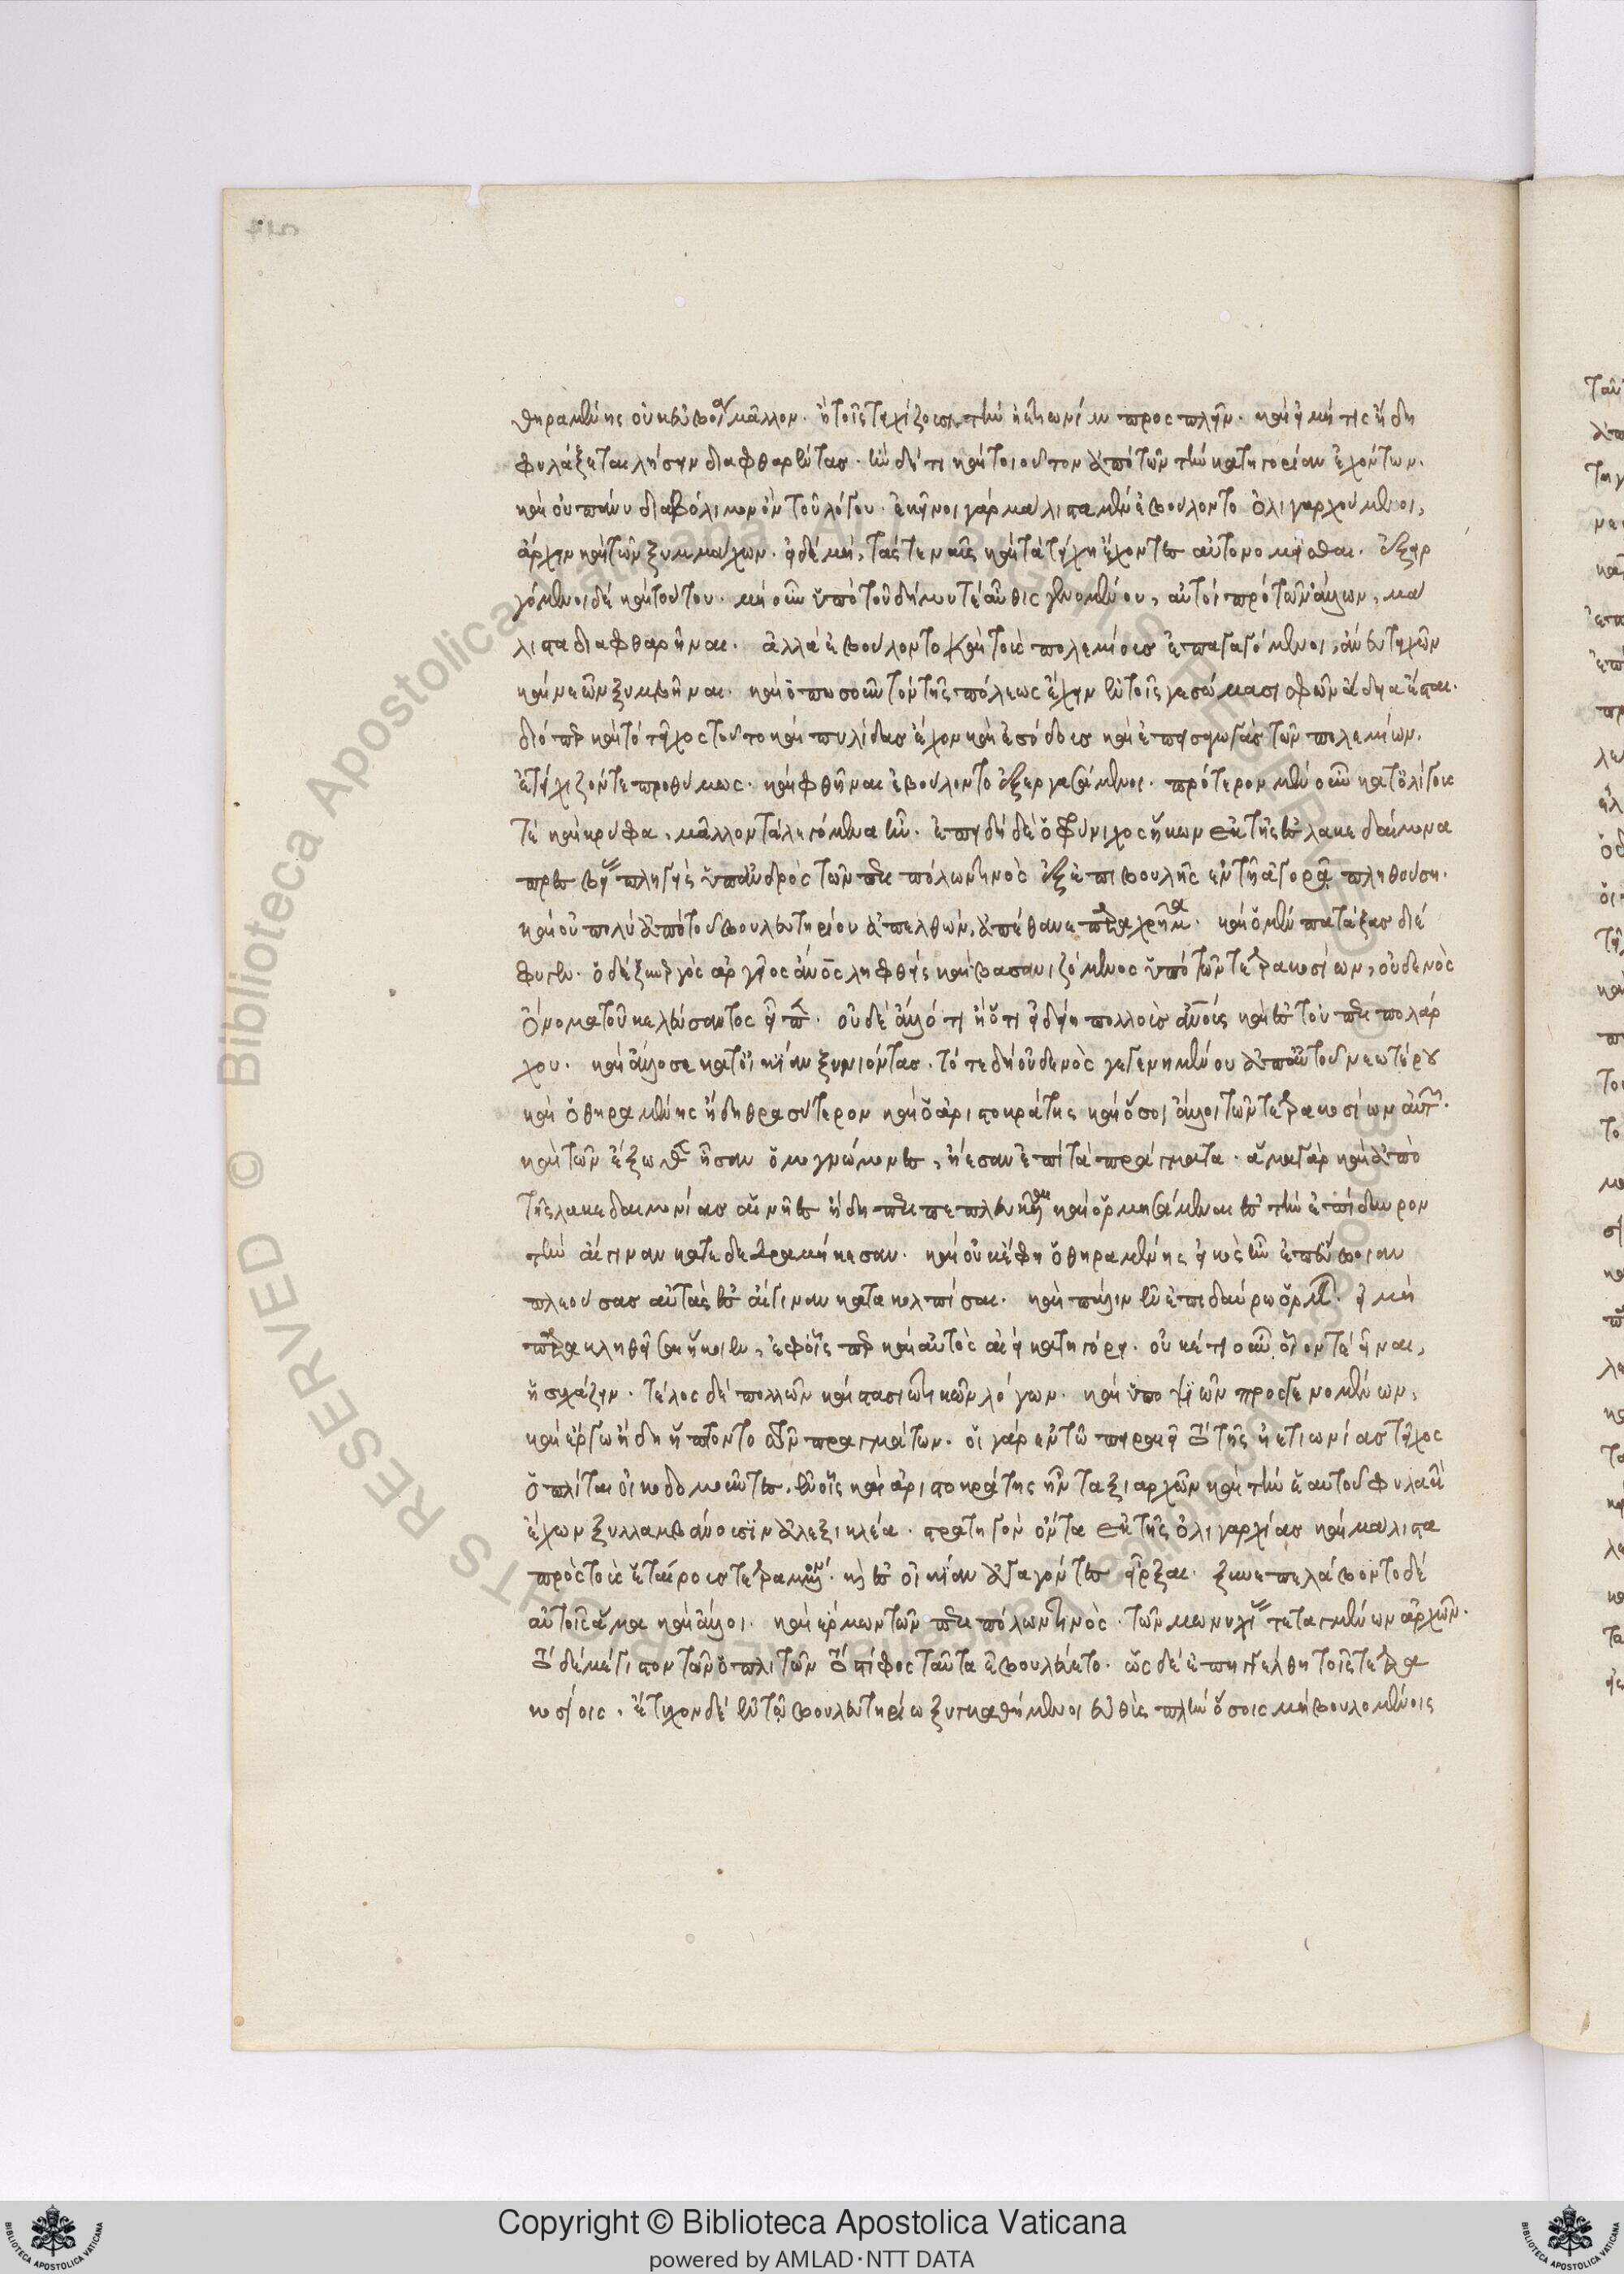 θηραμένης οὐκ εὐβοία μᾶλλον. ἢ τοῖς τειχίζουσι τὴν ἠετιωνίαν προσπλεῖν. καὶ εἰ μή τις ἤδη
φυλάξεται λήσειν διαφθαρέντας. ἦν δέ τι καὶ τοιοῦτον ἀπὸ τῶν τὴν κατηγορίαν ἐχόντων.
καὶ οὐ πάνυ διαβόλιμον ὂν τοῦ λόγου. ἐκεῖνοι γὰρ μάλιστα μὲν ἐβούλοντο ὀλιγαρχούμενοι,
ἄρχειν καὶ τῶν ξυμμάχων. εἰ δὲ μή, τάς τε ναῦς καὶ τὰ τείχη ἔχοντες αὐτονομεῖσθαι. ἐξειρ
γόμενοι δὲ καὶ τούτου. μὴ οὖν ὑπὸ τοῦ δήμου τε αὖθις γενομένου, αὐτοὶ πρὸ τῶν ἄλλων, μά
λιστα διαφθαρῆναι. ἀλλὰ ἐβούλοντο καὶ τοὺς πολεμίους ἐπαγαγόμενοι, ἄνευ τειχῶν
καὶ νεῶν ξυμβῆναι. καὶ ὁπωσοῦν τὸν τῆς πόλεως ἔχειν ἐν τοῖς γε σώμασι σφῶν ἄδεια ἔσται.
διόπερ καὶ τὸ τεῖχος τοῦτο καὶ πυλίδας ἔχον καὶ ἐσόδους καὶ ἐπεισαγωγὰς τῶν πολεμίων.
ἐτείχιζόν τε προθύμως. καὶ φθῆναι ἐβούλοντο ἐξεργασάμενοι. πρότερον μὲν οὖν κατ' ὀλίγους
τέ καὶ κρύφα. μᾶλλον τὰ λεγόμενα ἦν. ἐπειδὴ δὲ ὁ φρύνιχος ἥκων ἐκ τῆς ἐς λακεδαίμονα
πρεσβείας πληγεὶς ὑπ' ἀνδρὸς τῶν περιπόλων τινὸς ἐξ ἐπιβουλῆς ἐν τῇ ἀγορᾷ πληθούσῃ.
καὶ οὐ πολὺ ἀπὸ τοῦ βουλευτηρίου ἀπελθών, ἀπέθανε παραχρῆμα. καὶ ὁ μὲν πατάξας διέ
φυγεν. ὁ δὲ ξυνεργὸς ἀργεῖος ἄνος ληφθεὶς καὶ βασανιζόμενος ὑπὸ τῶν τετρακοσίων, οὐδενὸς
ὄνομα τοῦ κελεύσαντος εἶπεν. οὐδὲ ἄλλό τι ἢ ὅτι εἰδείη πολλοὺς αὐτοὺς καὶ ἐς τοῦ περιπολάρ
χου. καὶ ἄλλοσε κατ' οἰκίαν ξυνιόντας. τότε δὴ οὐδενὸς γεγενημένου ἀπ' αὐτοῦ νεωτέρου
καὶ ὁ θηραμένης ἤδη θρασύτερον καὶ ὁ ἀριστοκράτης καὶ ὅσοι ἄλλοι τῶν τετρακοσίων αὐτῶν.
καὶ τῶν ἔξωθεν ἦσαν ὁμογνώμονες, ᾔεσαν ἐπὶ τὰ πράγματα. ἅμα γὰρ καὶ ἀπὸ
τῆς λακεδαιμονίας αἱ νῆες ἤδη περιπεπλευκῆσθαι καὶ ὁρμησάμεναι ἐς τὴν ἐπίδαυρον
τὴν αἴγιναν κατεδεδραμήκεσαν. καὶ οὐκ ἔφη ὁ θηραμένης εἰκὸς ἦν ἐπ' εὔβοιαν
πλεούσας αὐτὰς ἐς αἴγιναν κατακολπίσαι. καὶ πάλιν ἐν ἐπιδαύρῳ ὁρμεῖν. εἰ μὴ
παρακληθεῖσαι ἥκοιεν, ἐφ' οἷσπερ καὶ αὐτὸς αἰεὶ κατηγόρει. οὐκέτι οὖν οἷόν τε εἶναι,
ἡσυχάζειν. τέλος δὲ πολλῶν καὶ στασιωτικῶν λόγων. καὶ ὑποψιῶν προσγενομένων,
καὶ ἔργῳ ἤδη ἥπτοντο τῶν πραγμάτων. οἱ γὰρ ἐν τῷ πειραιεῖ τὸ τῆς ἠετιωνίας τεῖχος
ὁπλίται οἰκοδομοῦντες. ἐν οἷς καὶ ἀριστοκράτης ἦν ταξιαρχῶν καὶ τὴν ἑαυτοῦ φυλακὴν
ἔχων ξυλλαμβάνουσιν ἀλεξικλέα. στρατηγὸν ὄντα ἐκ τῆς ὀλιγαρχίας καὶ μάλιστα
πρὸς τοὺς ἑταίρους τετραμμένον. καὶ ἐς οἰκίαν ἀγαγόντες εἷρξαι. ξυνεπελάβοντο δὲ
αὐτοῖς ἅμα καὶ ἄλλοι. καὶ ἕρμων τῶν περιπόλων τινὸς. τῶν μουνυχίασι τεταγμένων ἄρχων.
τὸ δὲ μέγιστον τῶν ὁπλιτῶν τὸ στίφος ταῦτα ἐβούλετο. ὡς δὲ ἐπηγγέλθη τοῖς τετρα
κοσίοις. ἔτυχον δὲ ἐν τῷ βουλευτηρίῳ ξυγκαθήμενοι εὐθὺς πλὴν ὅσοις μὴ βουλομένοις